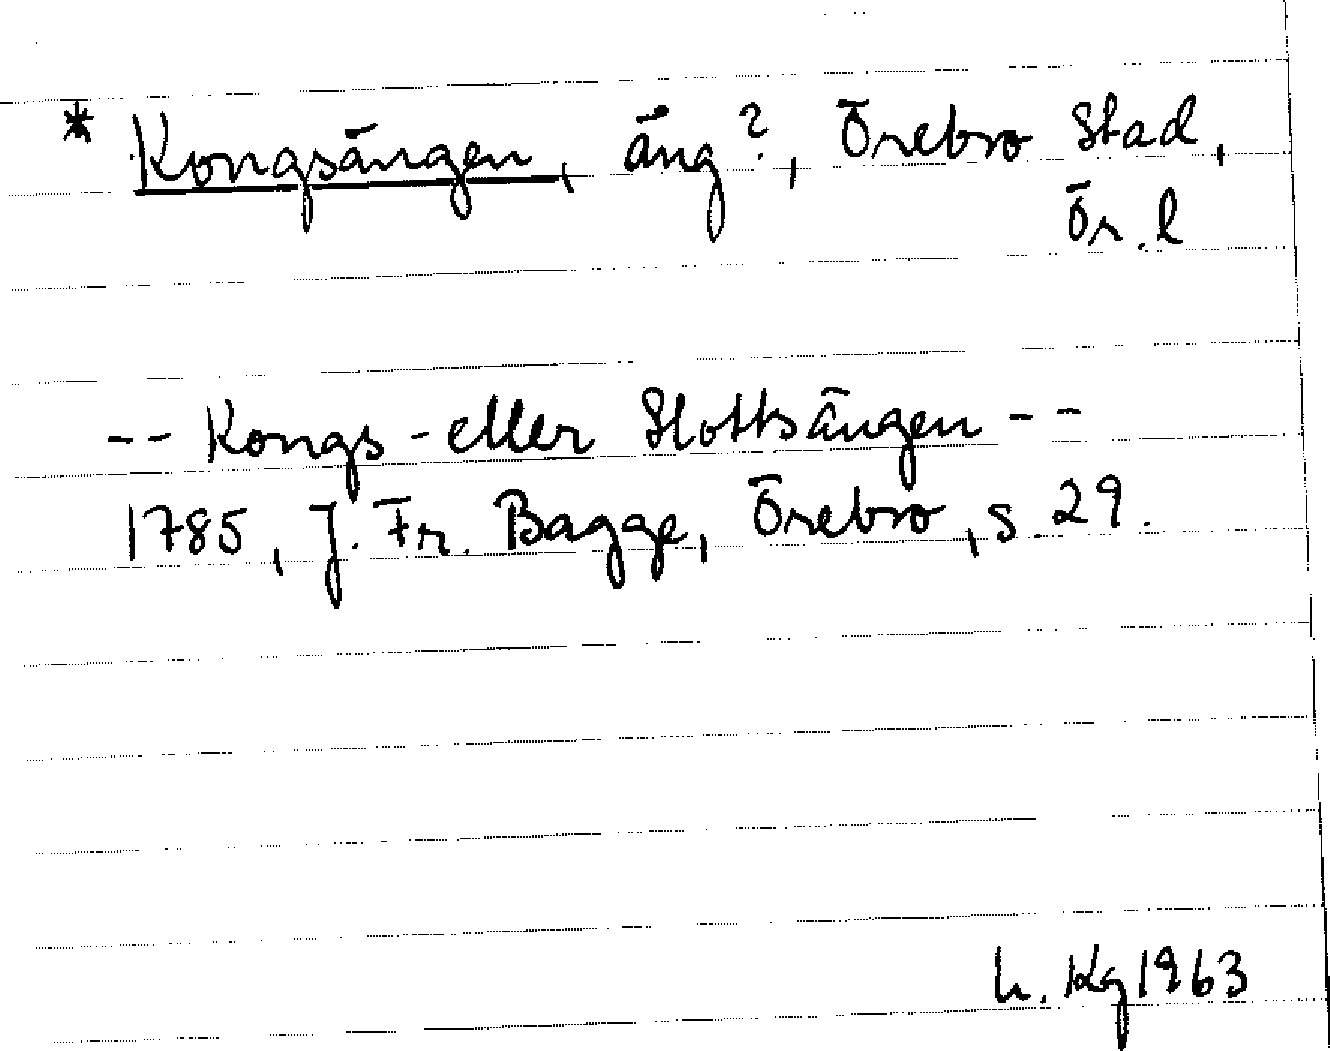 * Kongsängen, äng?, Örebro Stad,
Ör. l
-- Kongs- eller Slottsängen --
1785, J. Fr. Bagge, Örebro, s. 29.
h. Kg 1963